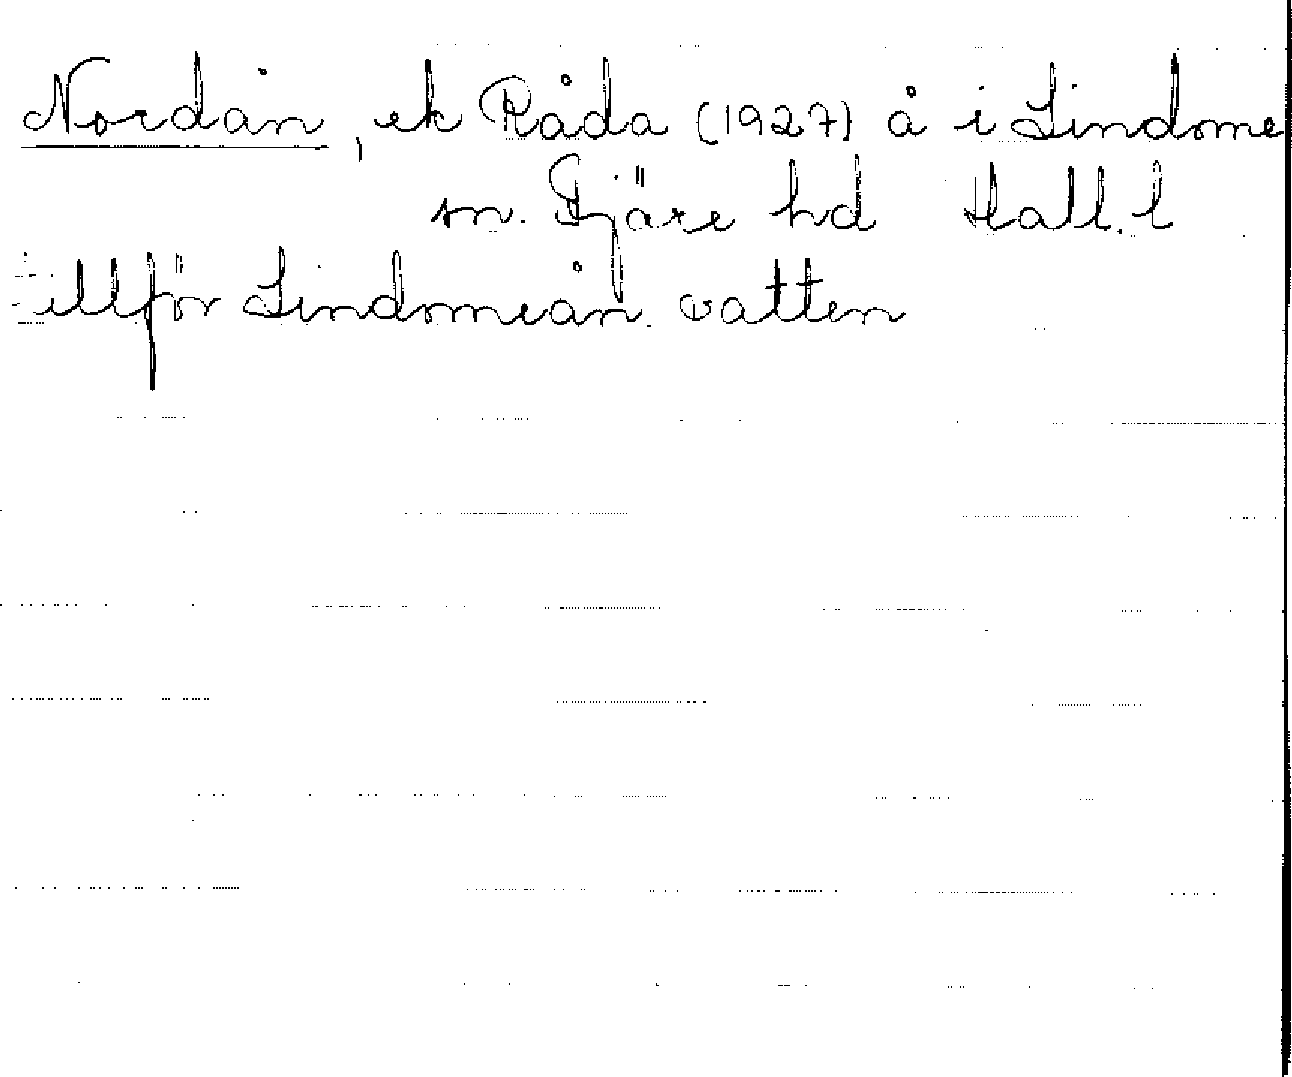 Nordån, ek Råda (1927) å i Lindome
sn. Fjäre hd Hall. l
tillför Lindomeån. vatten